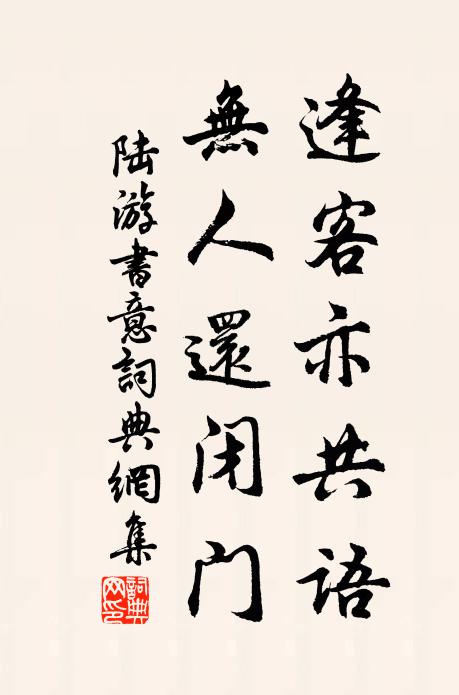 逢客亦共語
無人還闭门
陆游書意詞典網集
詞典网印